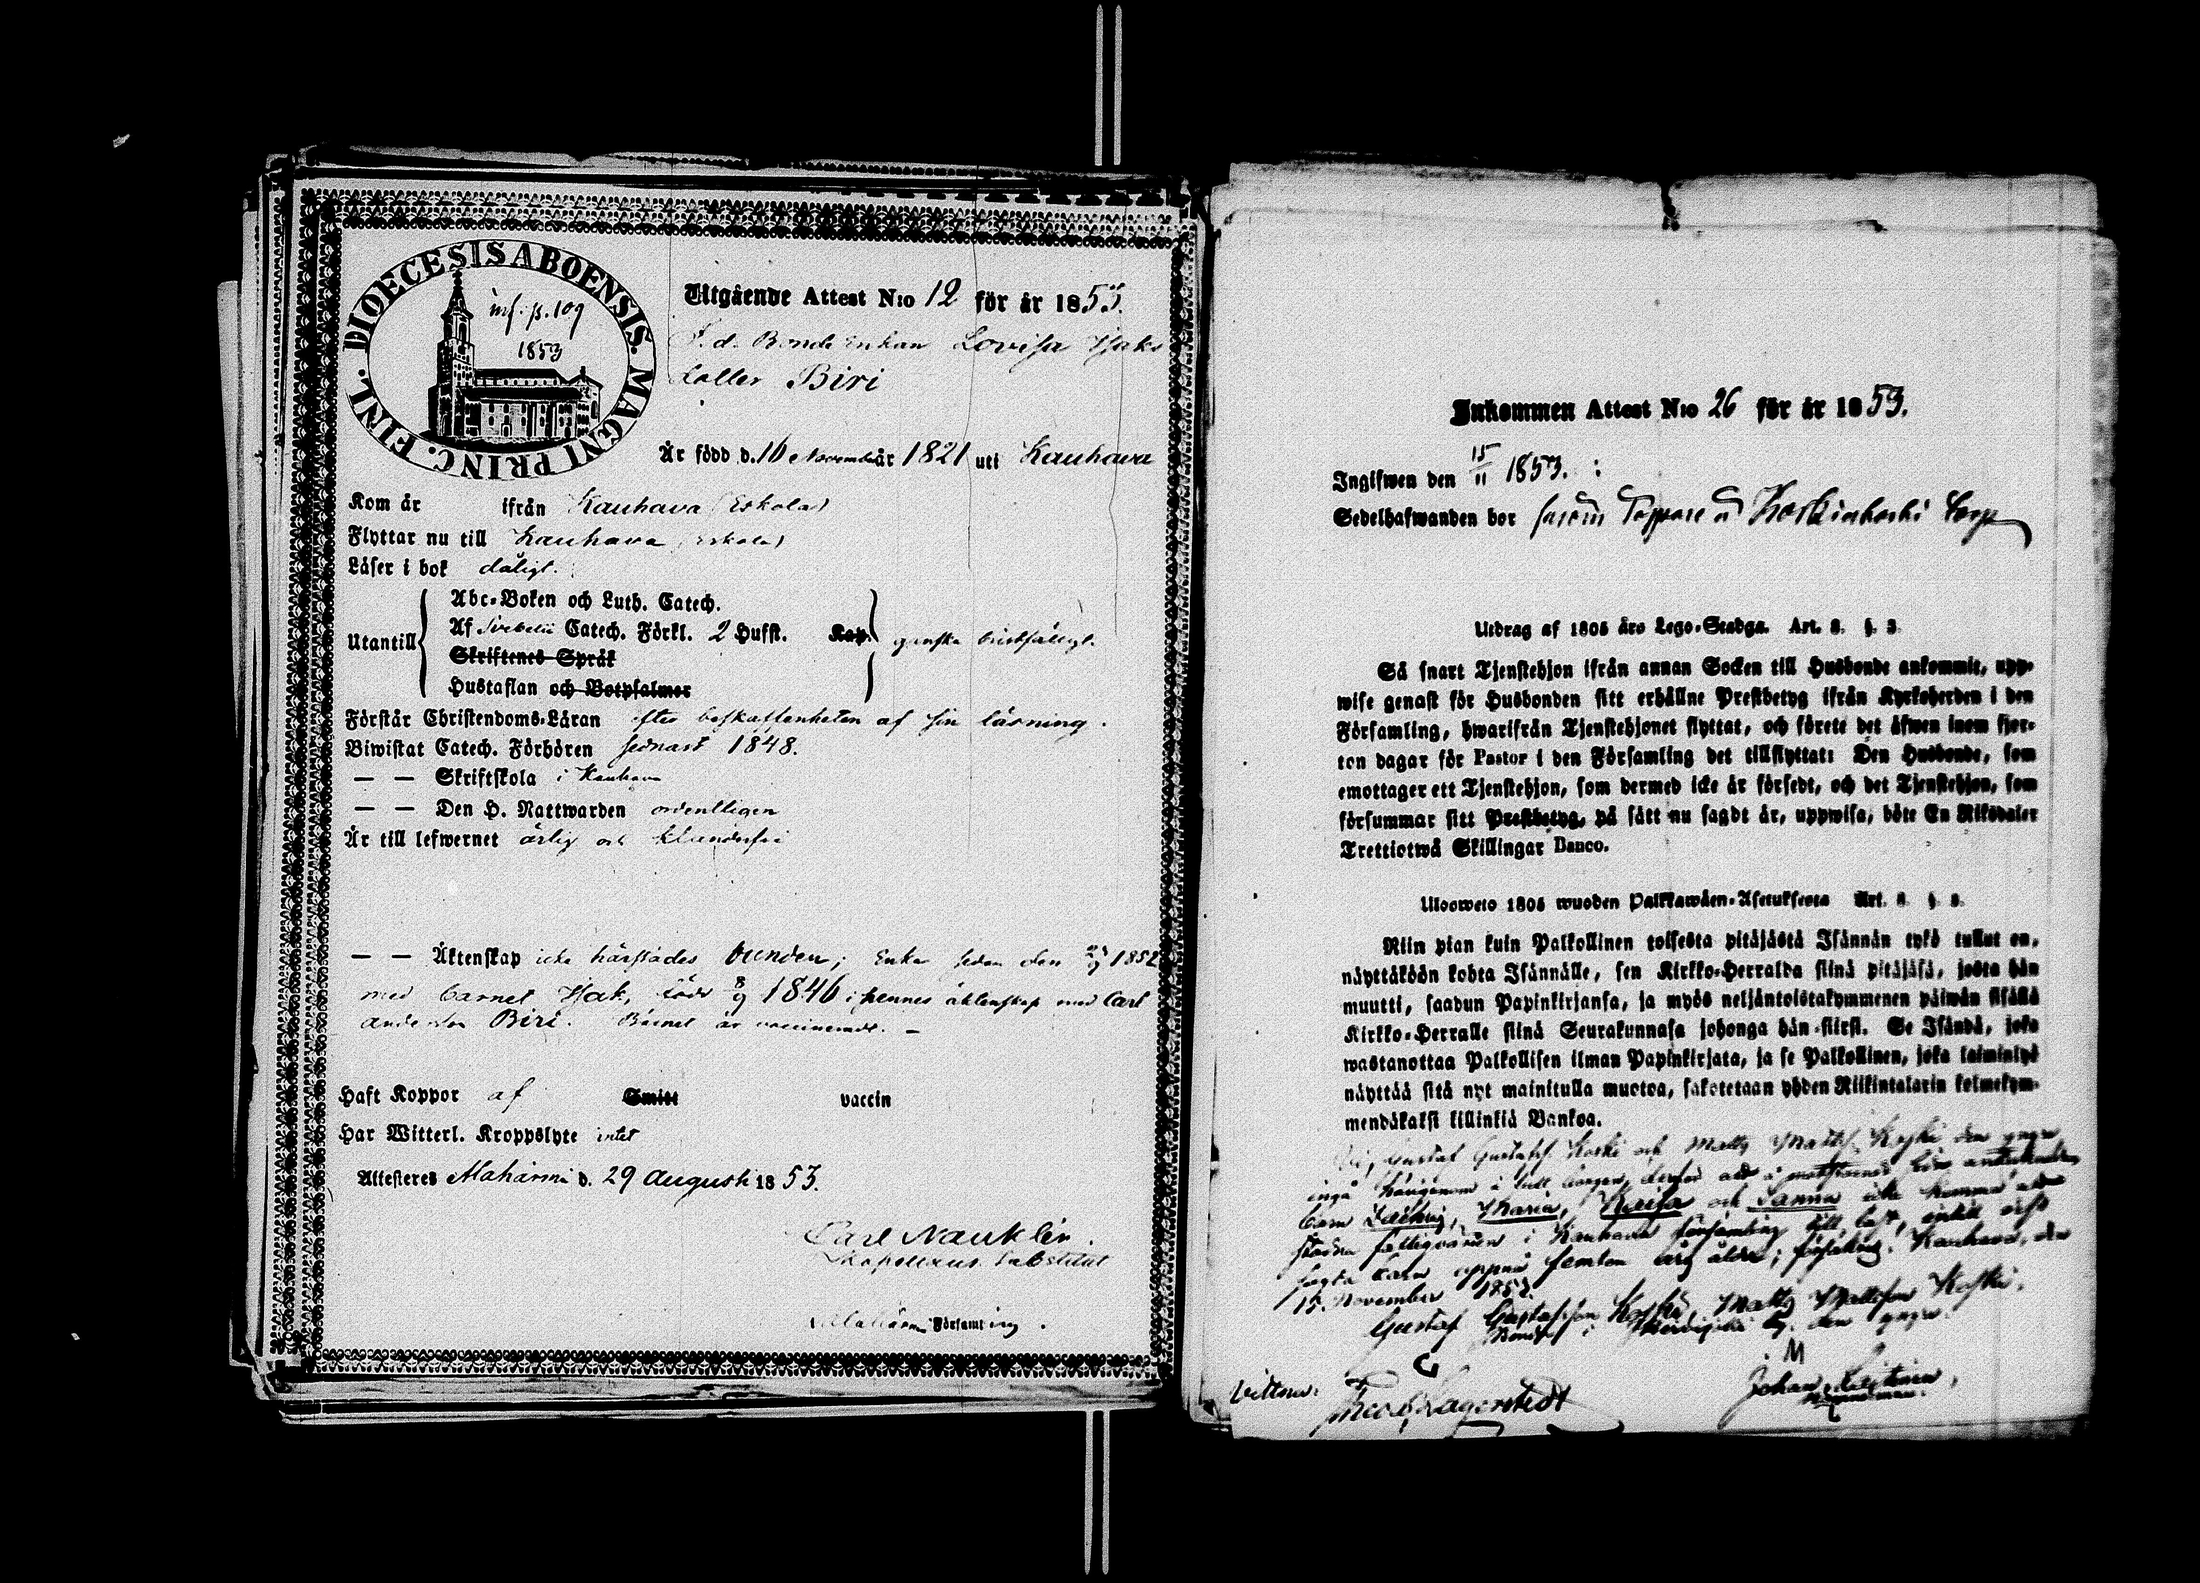 DIOECESIS ABOENSIS. MAGNI PRINC. FINL.
inf: p. 109
1853
Utgående Attest N:o 12 för år 1853.
F. d. Bonde Enkan Lovisa Isaks
dotter Biri
Är född d. 16 November år 1821 uti Kauhava
Kom år ifrån Kauhava (Eskola)
Flyttar nu till Kauhava (Eskola)
Läser i bok dåligt.
Utantill
Abc-Boken och Luth. Catech.
Af Svebelii Catech. Förkl. 2 Hufst. Kap. ganska bristfälligt.
Skriftenes Språk
Hustaflan och Botpsalmer
Förstår Christendoms-Läran efter beskaffenheten af sin läsning.
Biwistat Catech. Förhören sednast 1848.
— — Skriftskola i Kauhava
— — Den H. Nattwarden ordentligen
Är till lefwernet ärlig och klanderfri
— — Äktenskap icke härstädes bunden; Enka sedan den 1852
med barnet Isak, född 8/9 1846 i hennes äktenskap med Carl
Andersson Biri. Barnet är vaccineradt. —
Haft Koppor af Smitt vaccin
Har Witterl. Kroppslyte intet
Attesteres Alahärmä d. 29 Augusti 1853.
Carl Nauklér.
Kapellans Substitut
Alahärmä Församling.
Inkommen Attest N:o 26 för år 1853.
Ingifwen den 15/11 1853. :
Sedelhafwanden bor Koskinkoski
Utdrag af 1805 års Lego-Stadga. Art. 8. §. 3.
Så snart Tjenstehjon ifrån annan Socken till Husbonde ankommit, upp-
wise genast för Husbonden sitt erhållne Prestbetyg ifrån Kyrkoherden i den
Församling, hwarifrån Tjenstehjonet flyttat, och förete det äfwen inom fjor-
ton dagar för Pastor i den Församling det tillflyttat: Den Husbonde, som
emottager ett Tjenstehjon, som dermed icke är försedt, och det Tjenstehjon, som
försummar sitt Prestbetyg, på sätt nu sagdt är, uppwisa, böte En Riksdaler
Trettiotwå Skillingar Banco.
Ulosweto 1805 wuoden Palkkawäen-Asetuksesta Art. 8. §. 3.
Niin pian kuin Palkollinen toisesta pitäjästä Isännän tykö tullut on,
näyttäköön kohta Isännälle, sen Kirkko-Herralda siinä pitäjäsä, josta hän
muutti, saadun Papinkirjansa, ja myös neljäntoistakymmenen päiwän sisällä
Kirkko-Herralle siinä Seurakunnasa johonga hän siirsi. Se Isändä, joka
wastanottaa Palkollisen ilman Papinkirjata, ja se Palkollinen, joka laiminlyö
näyttää sitä nyt mainitulla muotoa, sakotetaan yhden Riikintalarin kolmekym-
mendäkaksi killinkiä Bankoa.
Vi, Gustaf Gustafss. Koski och Matts Mattss. Koski den yngre
ingå härigenom i full borgen, derför att
barn Maria, Kaisa och Sanna icke komma att
fattigvården i Kauhava församling till last, intill dess
sagda barn uppnå femton års ålder; försäkras. Kauhava, den
15. November 1853.
Gustaf Gustafsson Koski, Matts Mattsson Koski,
Bonde den yngre
M
Vittna:
Theod. Lagerstedt Johan